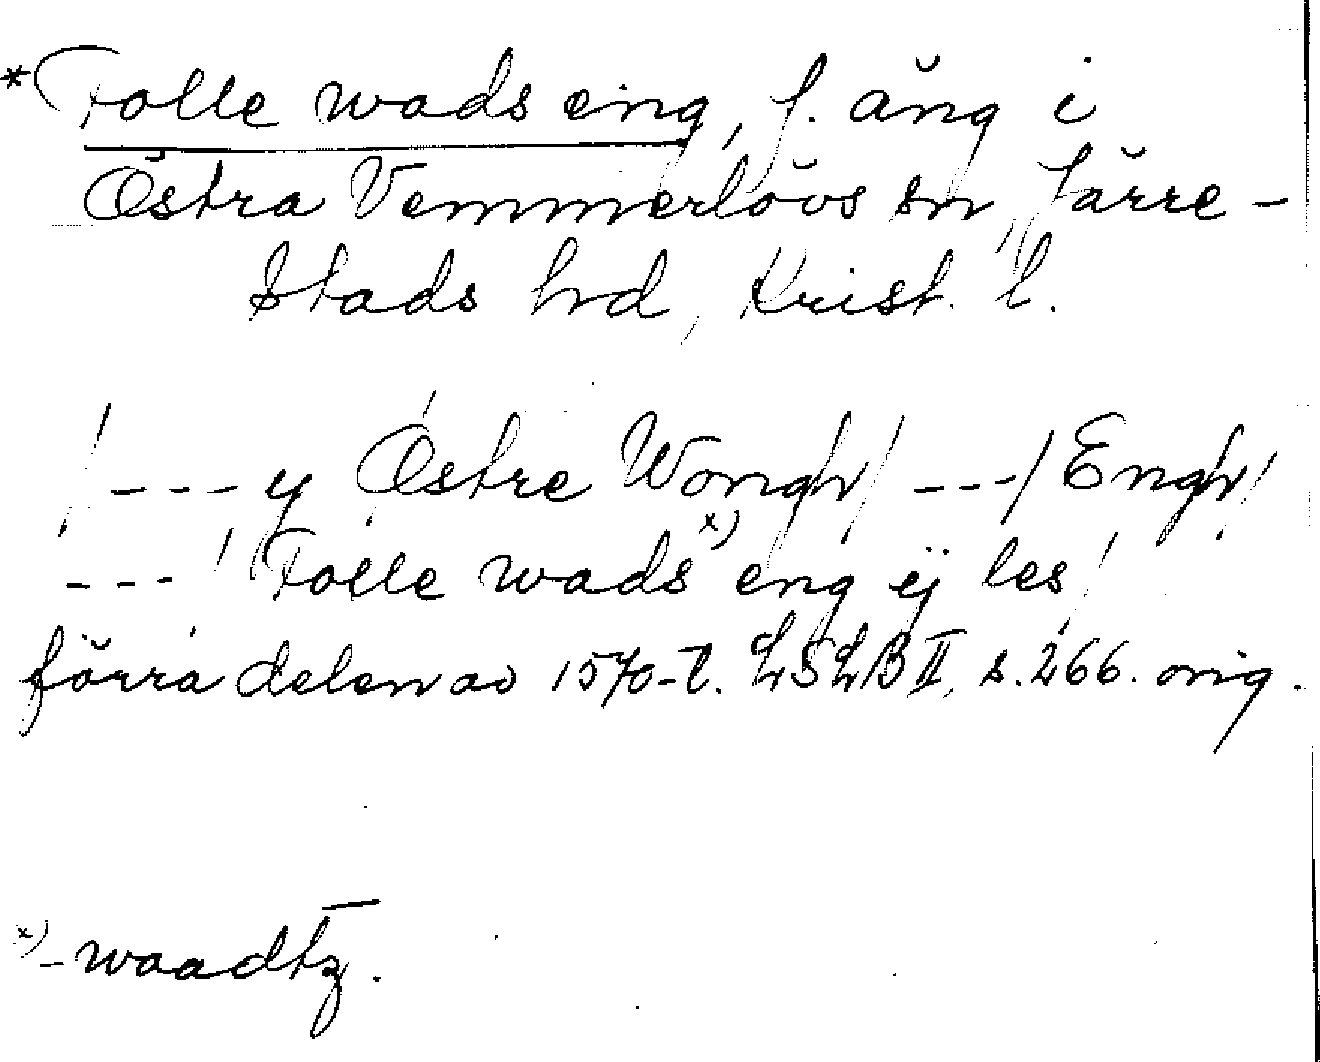 *Folle wads eng, f. äng i
Östra Vemmerlövs sn, Järre-
stads hd, Krist. l.
/---y Østre Wongh/ ---/ Engh/
---/ Folle wads x) eng ÿ les/
förra delen av 1570-t. LSLB II, s. 266. orig.
x) -waadtz.